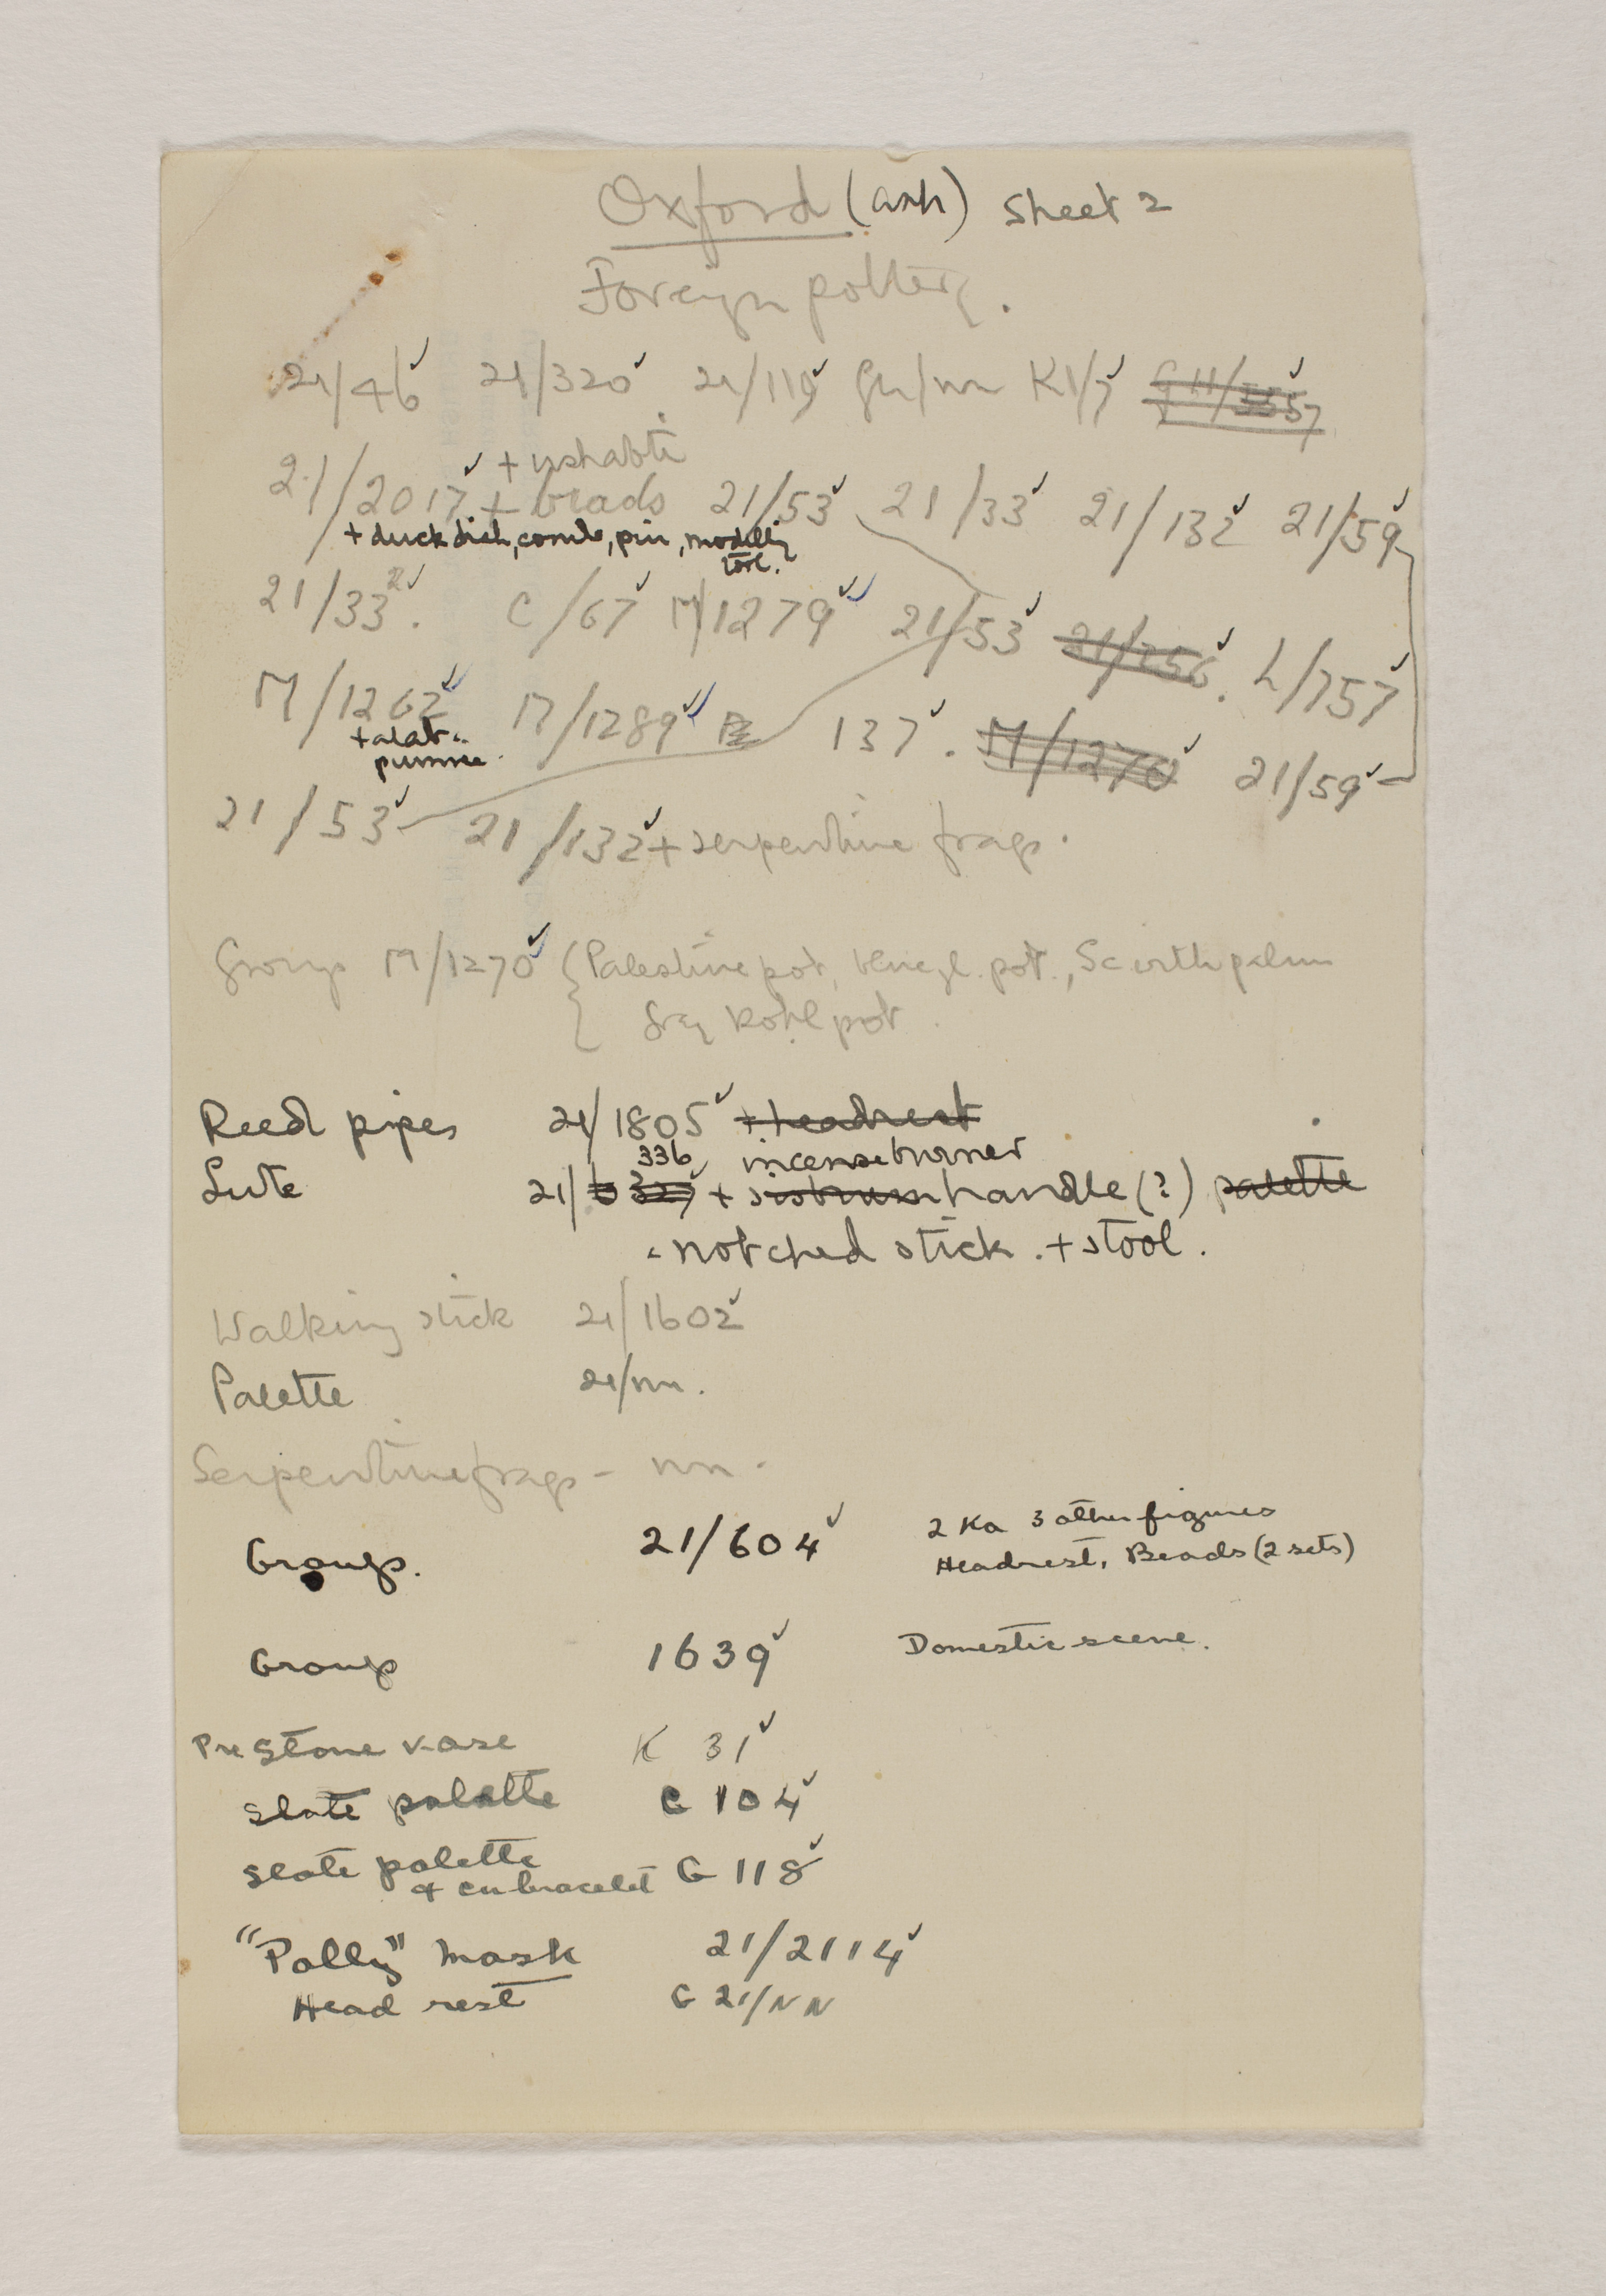 Oxford (ash) Sheet 2
Foreign pottery.
21/46✓ 21/320✓ 21/119✓ Gu/nn K1/7✓
+ ushabti
21/2017✓ + beads 21/53✓ 21/33✓ 21/132✓ 21/59✓
+ duck dish, comb, pin, modellg
tool.
21/332✓. C/67✓ M/1279✓ 21/53✓ 21/256✓. L/757✓
M/1262✓ M/1289✓ 137✓. M/1270✓ 21/59✓
+ alab..
pumice.
21/53✓ 21/132✓ + serpentine frags.
Group M/1270✓ { Palestine pot, blue gl. pot., Sc with palm
Grey Kohl pot.
Reed pipes 21/1805✓ + headrest
336 incense burner
Lute 21/ 327✓ + sistrum handle (?) palette
notched stick. + stool.
Walking stick 21/1602✓
Palette 21/nn.
Serpentine frags - nn.
Group. 21/604✓ 2 Ka 3 other figures
Headrest, Beads (2 sets)
Group 1639✓ Domestic scene.
Pre Stone vase K 31✓
Slate palette G 104✓
Slate palette G 118✓
& cu bracelet
"Polly" mask 21/2114✓
Head rest G 21/NN